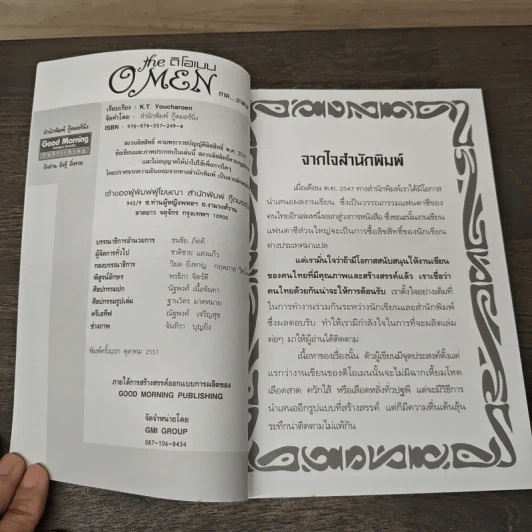 the ดิโอเมน
OMEN
ภาค
เรียบเรียง : K.T. Youcharoen
จัดทำโดย : สำนักพิมพ์ กู๊ดมอร์นิ่ง
ISBN : 978-974-357-249-4
สำนักพิมพ์ กู๊ดมอร์นิ่ง
Good Morning
Publishing
ยิ่งอ่าน ยิ่งรู้ ยิ่งรวย
สงวนลิขสิทธิ์ ตามพระราชบัญญัติลิขสิทธิ์ พ.ศ.
เจ้าของผู้พิมพ์ผู้โฆษณา สำนักพิมพ์
945/9 ซ.ท่านผู้หญิงพหลฯ ถ.งามวงศ์วาน
ลาดยาว จตุจักร กรุงเทพฯ 10900
บรรณาธิการอำนวยการ ธนชัย ภัคดี
ผู้จัดการทั่วไป ชาติชาย แสงแก้ว
กองบรรณาธิการ วิมล ยิ่งหาญ
พิสูจน์อักษร พรธิภา จิตร์ดี
ศิลปกรรมปก ณัฐพงศ์ เนื้อจันทา
ศิลปกรรมรูปเล่ม ฐานวิตร มาตหมาย
ครีเอทีฟ ณัฐพงศ์ เจริญสุข
ช่างภาพ จันทิรา บุญยิ่ง
พิมพ์ครั้งแรก ตุลาคม 2551
ภายใต้การสร้างสรรค์ออกแบบการผลิตของ
GOOD MORNING PUBLISHING
จัดจำหน่ายโดย
GMI GROUP
087-106-8434
จากใจสำนักพิมพ์
เมื่อเดือน ต.ค. 2547 ทางสำนักพิมพ์เราได้มีโอกาส
นำเสนอผลงานเขียน ซึ่งเป็นวรรณกรรมแฟนตาซีของ
คนไทยอีกเล่มหนึ่งออกสู่วงการหนังสือ ซึ่งขณะนั้นงานเขียน
แฟนตาซีส่วนใหญ่จะเป็นการซื้อลิขสิทธิ์ของนักเขียน
ต่างประเทศมาแปล
แต่เรามั่นใจว่าถ้ามีโอกาสสนับสนุนให้งานเขียน
ของคนไทยที่มีคุณภาพและสร้างสรรค์แล้ว เราเชื่อว่า
คนไทยด้วยกันน่าจะให้การต้อนรับ เราตั้งใจอย่างเต็มที่
ในการทำงานร่วมกันระหว่างนักเขียนและสำนักพิมพ์
ซึ่งผลตอบรับ ทำให้เรามีกำลังใจในการที่จะผลิตเล่ม
ต่อๆ มาให้ผู้อ่านได้ติดตาม
เนื้อหาของเรื่องนั้น ตัวผู้เขียนมีจุดประสงค์ตั้งแต่
แรกว่างานเขียนของดิโอเมนนั้นจะไม่มีฉากเหี้ยมโหด
เลือดสาด ควักไส้ หรือเลือดหลั่งทั่วปฐพี แต่จะมีวิธีการ
นำเสนออีกรูปแบบที่สร้างสรรค์ แต่ก็มีความตื่นเต้นลุ้น
ระทึกน่าติดตามไม่แพ้กัน